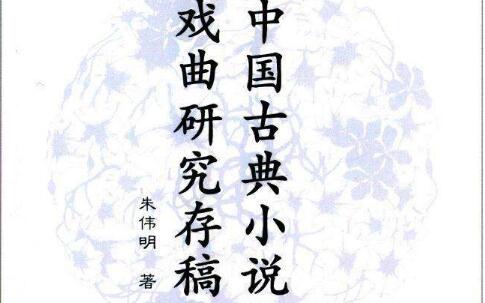 中国古典小说
戏曲研究存稿
朱伟明 著